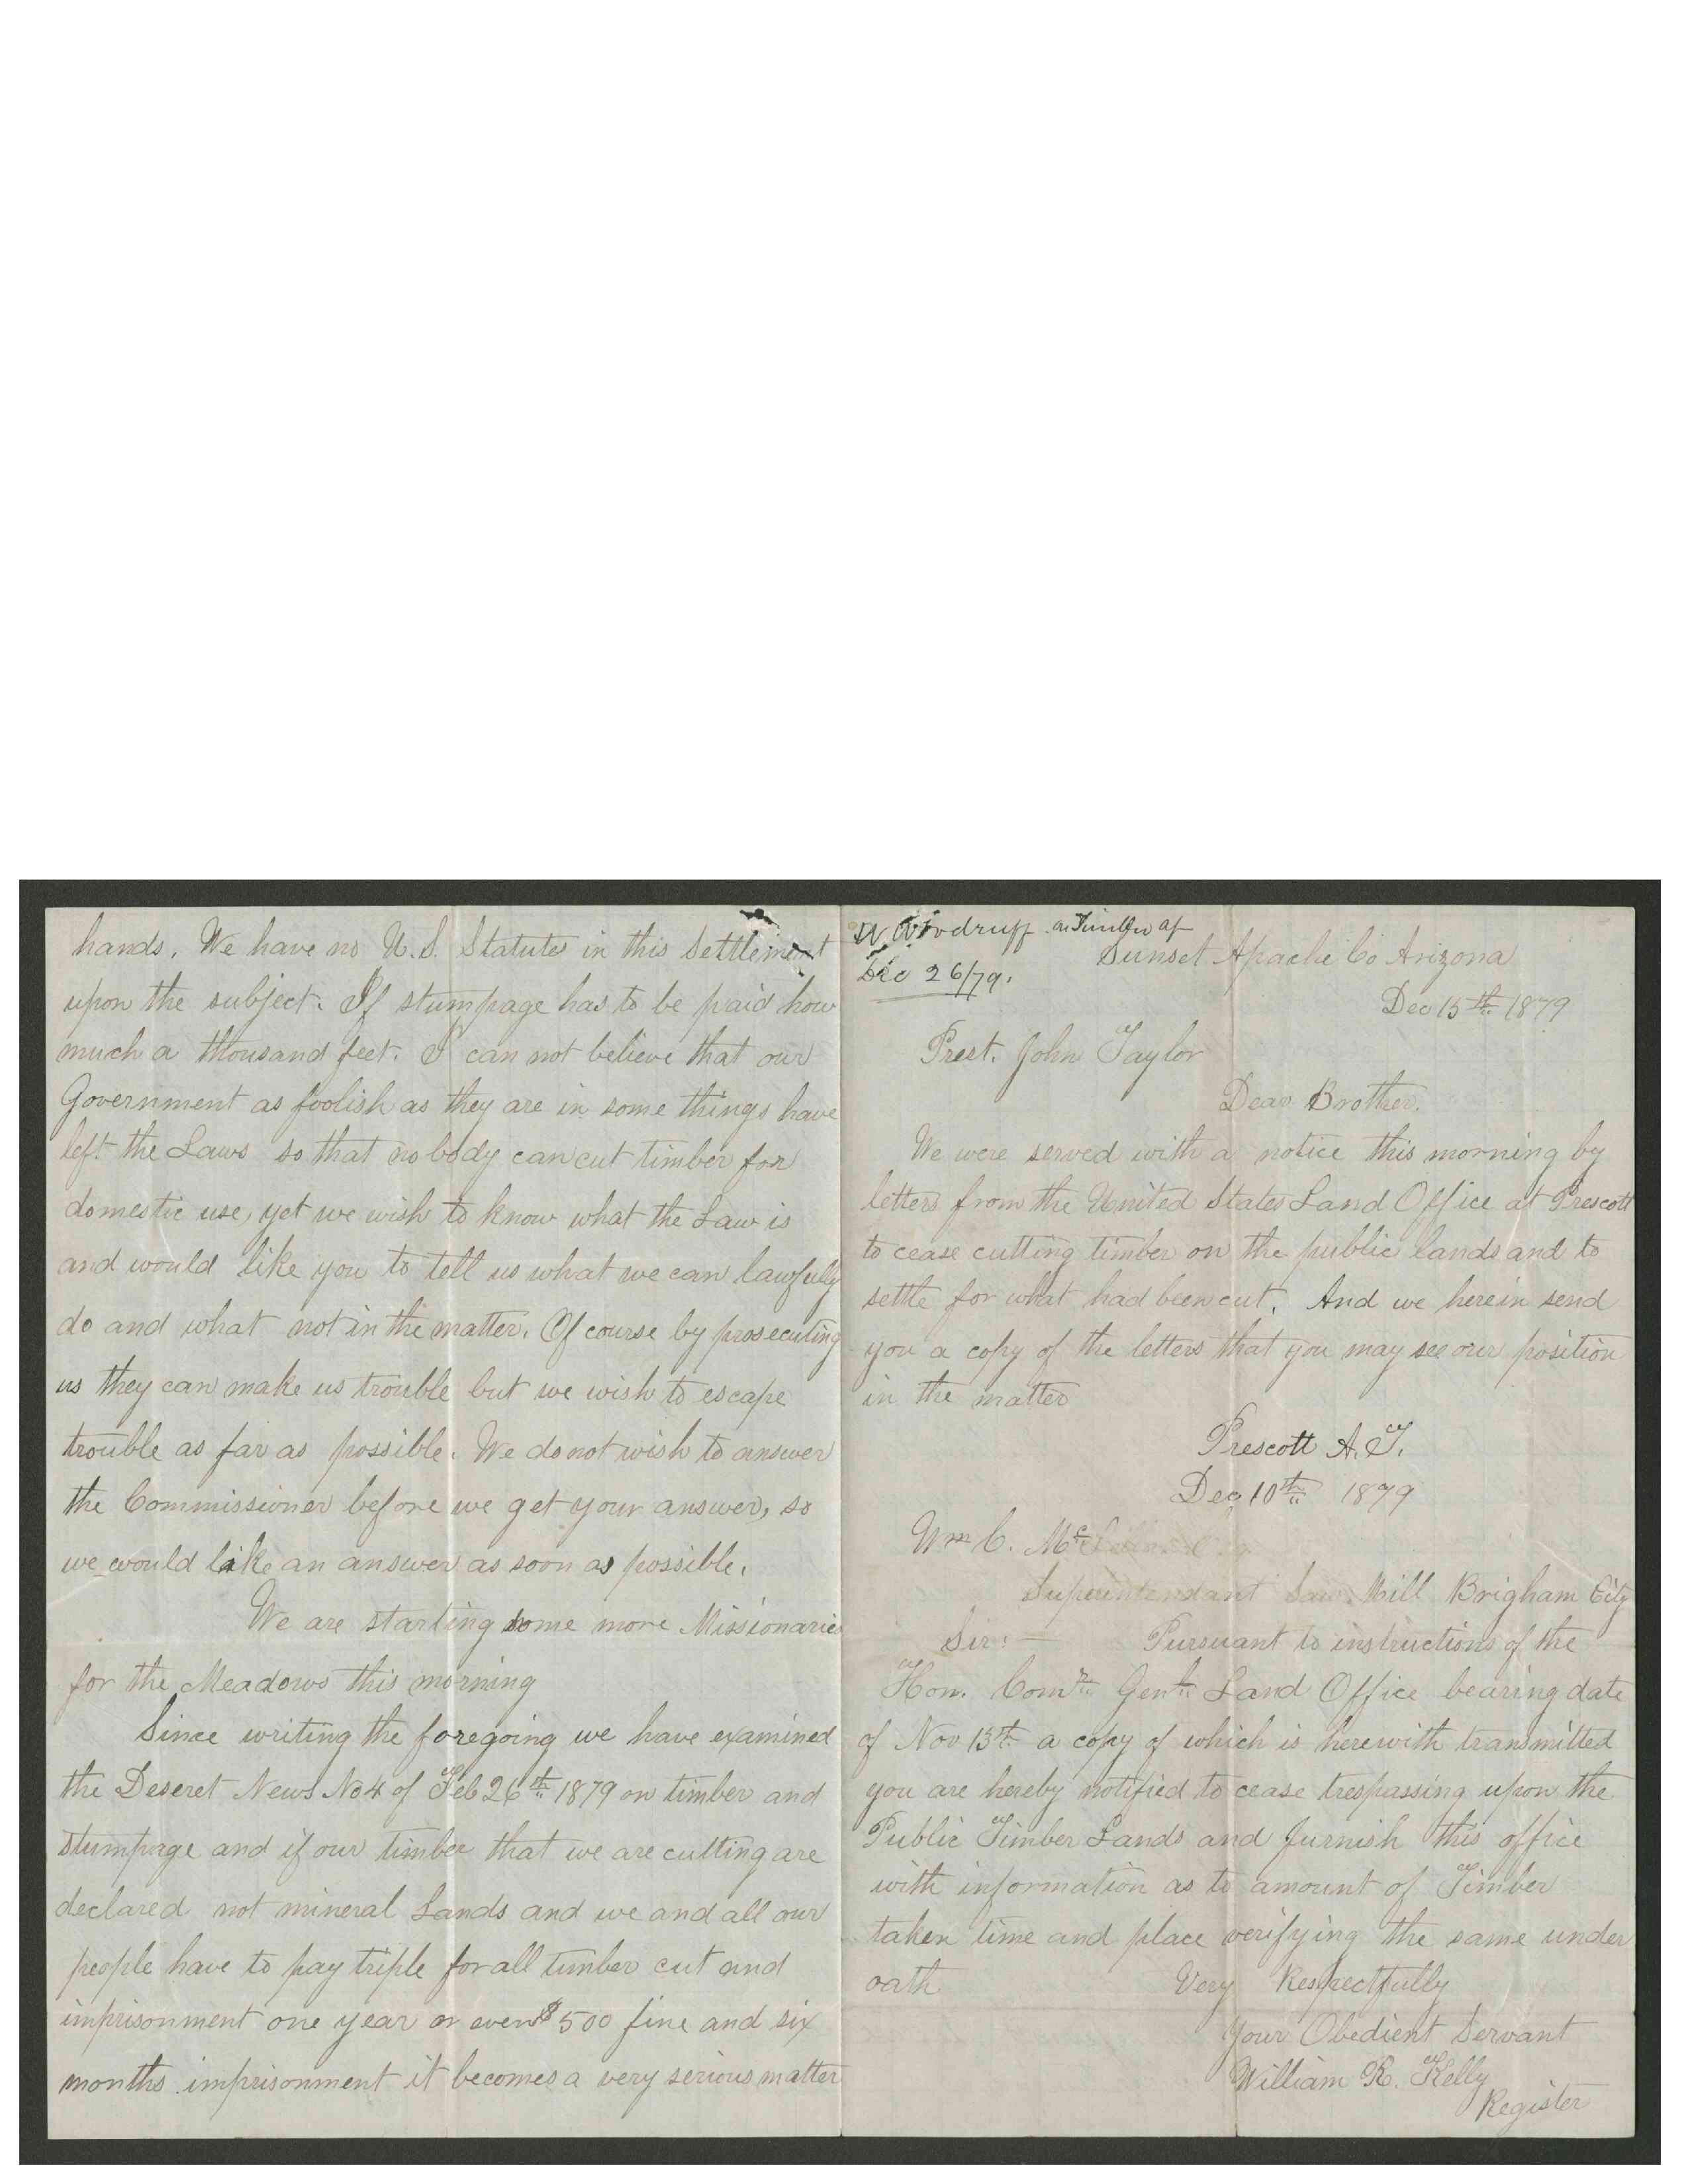 hands. We have no U.S. Statutes in this Settlement
upon the subject. If stumpage has to be paid how
much a thousand feet. I can not believe that our
Government as foolish as they are in some things have
left the Laws so that nobody can cut timber for
domestic use, yet we wish to know what the Law is
and would like you to tell us what we can lawfully
do and what not in the matter. Of course by prosecuting
us they can make us trouble but we wish to escape
trouble as far as possible. We do not wish to answer
the Commissioner before we get your answer, so
we would like an answer as soon as possible.
We are starting some more Missionaries
for the Meadows this morning
Since writing the foregoing we have examined
the Deseret News No 4 of Feb 26th 1879 on timber and
stumpage and if our timber that we are cutting are
declared not mineral Lands and we and all our
people have to pay triple for all timber cut and
imprisonment one year or even $500 fine and six
months imprisonment it becomes a very serious matter
W Woodruff
Dec 26/79.
Sunset Apache Co Arizona
Dec 15th 1879
Prest. John Taylor
Dear Brother.
We were served with a notice this morning by
letters from the United States Land Office at Prescott
to cease cutting timber on the public lands and to
settle for what had been cut. And we herein send
you a copy of the letters that you may see our position
in the matter
Prescott A.T.
Dec 10th 1879
Wm C.
Superintendant Saw Mill Brigham City
Sir:— Pursuant to instructions of the
Hon. Comr Genl Land Office bearing date
of Nov 13th a copy of which is herewith transmitted
you are hereby notified to cease trespassing upon the
Public Timber Lands and furnish this office
with information as to amount of Timber
taken time and place verifying the same under
oath Very Respectfully
Your Obedient Servant
William R. Kelly
Register